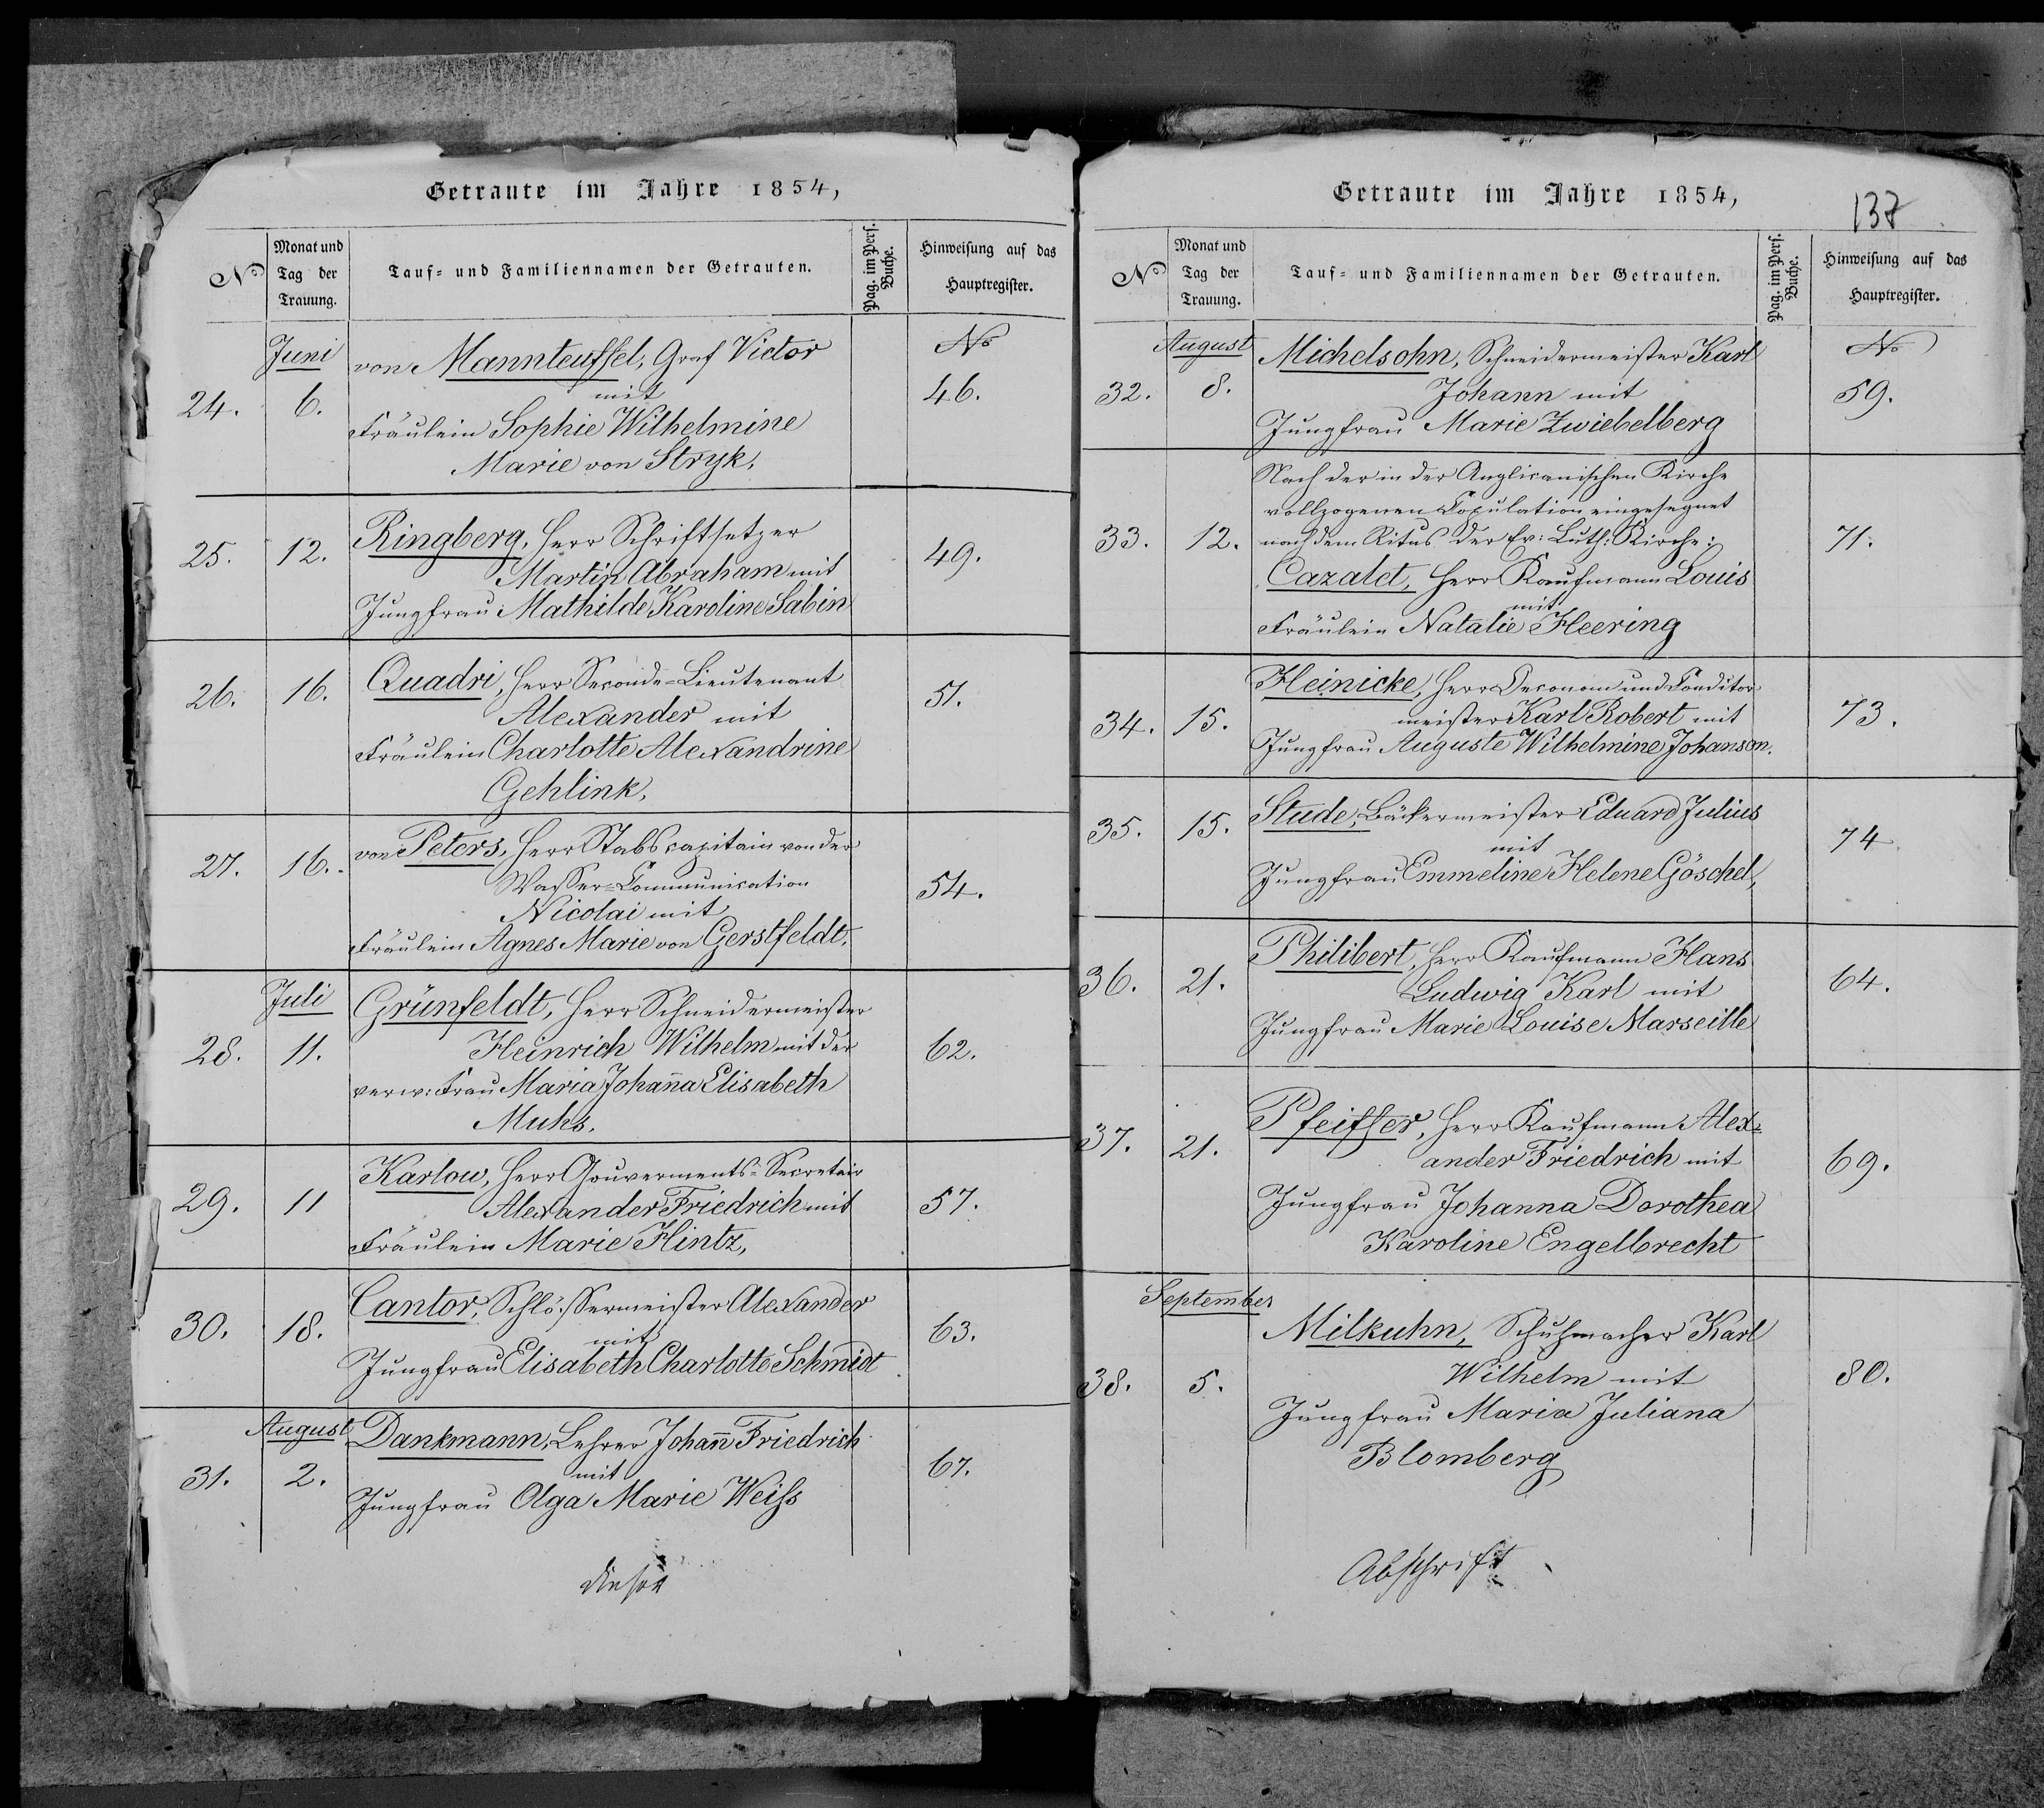 Getraute im Jahre 1854,
№
Monat und
Tag der
Trauung.
Tauf- und Familiennamen der Getrauten.
Pag. im Pers.
Buche.
Hinweisung auf das
Hauptregister.
Juni
№
von Mannteuffel, Graf Victor
mit
24. 6. 46.
Fräulein Sophie Wilhelmine
Marie von Stryk.
Ringberg, Herr Schriftsetzer
25. 12. 49.
Martin Abraham mit
Jungfrau Mathilde Karoline Sabin
Quadri, Herr Seconde-Lieutenant
26. 16. 51.
Alexander mit
Fräulein Charlotte Alexandrine
Gehlink.
von Peters, Herr Stabscapitain von der
27. 16. 54.
Wasser-Communication
Nicolai mit
Fräulein Agnes Marie von Gerstfeldt.
Juli
Grünfeldt, Herr Schneidermeister
28. 11. 62.
Heinrich Wilhelm mit der
verw: Frau Maria Johan̄a Elisabeth
Muhs.
Karlow, Herr Gouverments-Secretair
29. 11 57.
Alexander Friedrich mit
Fräulein Marie Hintz,
Cantor, Schlössermeister Alexander
mit
30. 18. 63.
Jungfrau Elisabeth Charlotte Schmidt
August
Dankmann, Lehrer Johan̄ Friedrich
mit
31. 2. 67.
Jungfrau Olga Marie Weiss
dieser
Getraute im Jahre 1854,
137
№
Monat und
Tag der
Trauung.
Tauf- und Familiennamen der Getrauten.
Pag. im Pers.
Buche.
Hinweisung auf das
Hauptregister.
August
№
Michelsohn, Schneidermeister Karl
32. 8. 59.
Johann mit
Jungfrau Marie Zwiebelberg
Nach der in der Anglicanischen Kirche
vollzogenen Copulation eingesegnet
33. 12. nach dem Ritus der Ev: Luth: Kirche: 71.
Cazalet, Herr Kaufmann Louis
mit
Fräulein Natalie Heering
Heinicke, Herr Oeconom und Conditor
34. 15. meister Karl Robert mit 73.
Jungfrau Auguste Wilhelmine Johanson.
35. 15. Stude, Bäckermeister Eduard Julius
mit
74
Jungfrau Emmeline Helene Göschel,
Philibert, Herr Kaufmann Hans
36. 21. Ludwig Karl mit 64.
Jungfrau Marie Louise Marseille
Pfeiffer, Herr Kaufmann Alex=
37. 21. ander Friedrich mit 69.
Jungfrau Johanna Dorothea
Karoline Engelbrecht
September
Milkuhn, Schuhmacher Karl
38. 5. Wilhelm mit 80.
Jungfrau Maria Juliana
Blomberg
Abschrift